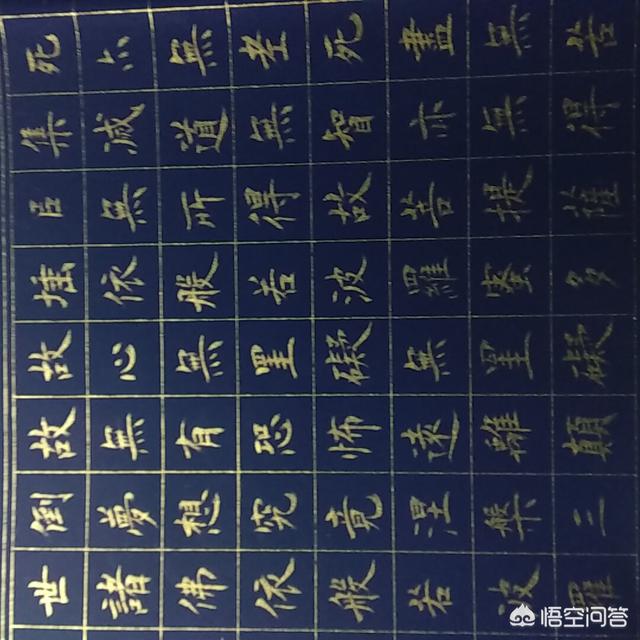 死亦無老死盡無苦
集滅道無智亦無得
㠯無所得故菩提薩
埵依般若波羅蜜多
故心無罣礙無罣礙
故無有恐怖遠離顛
倒夢想究竟涅槃三
世諸佛依般若波羅
悟空问答